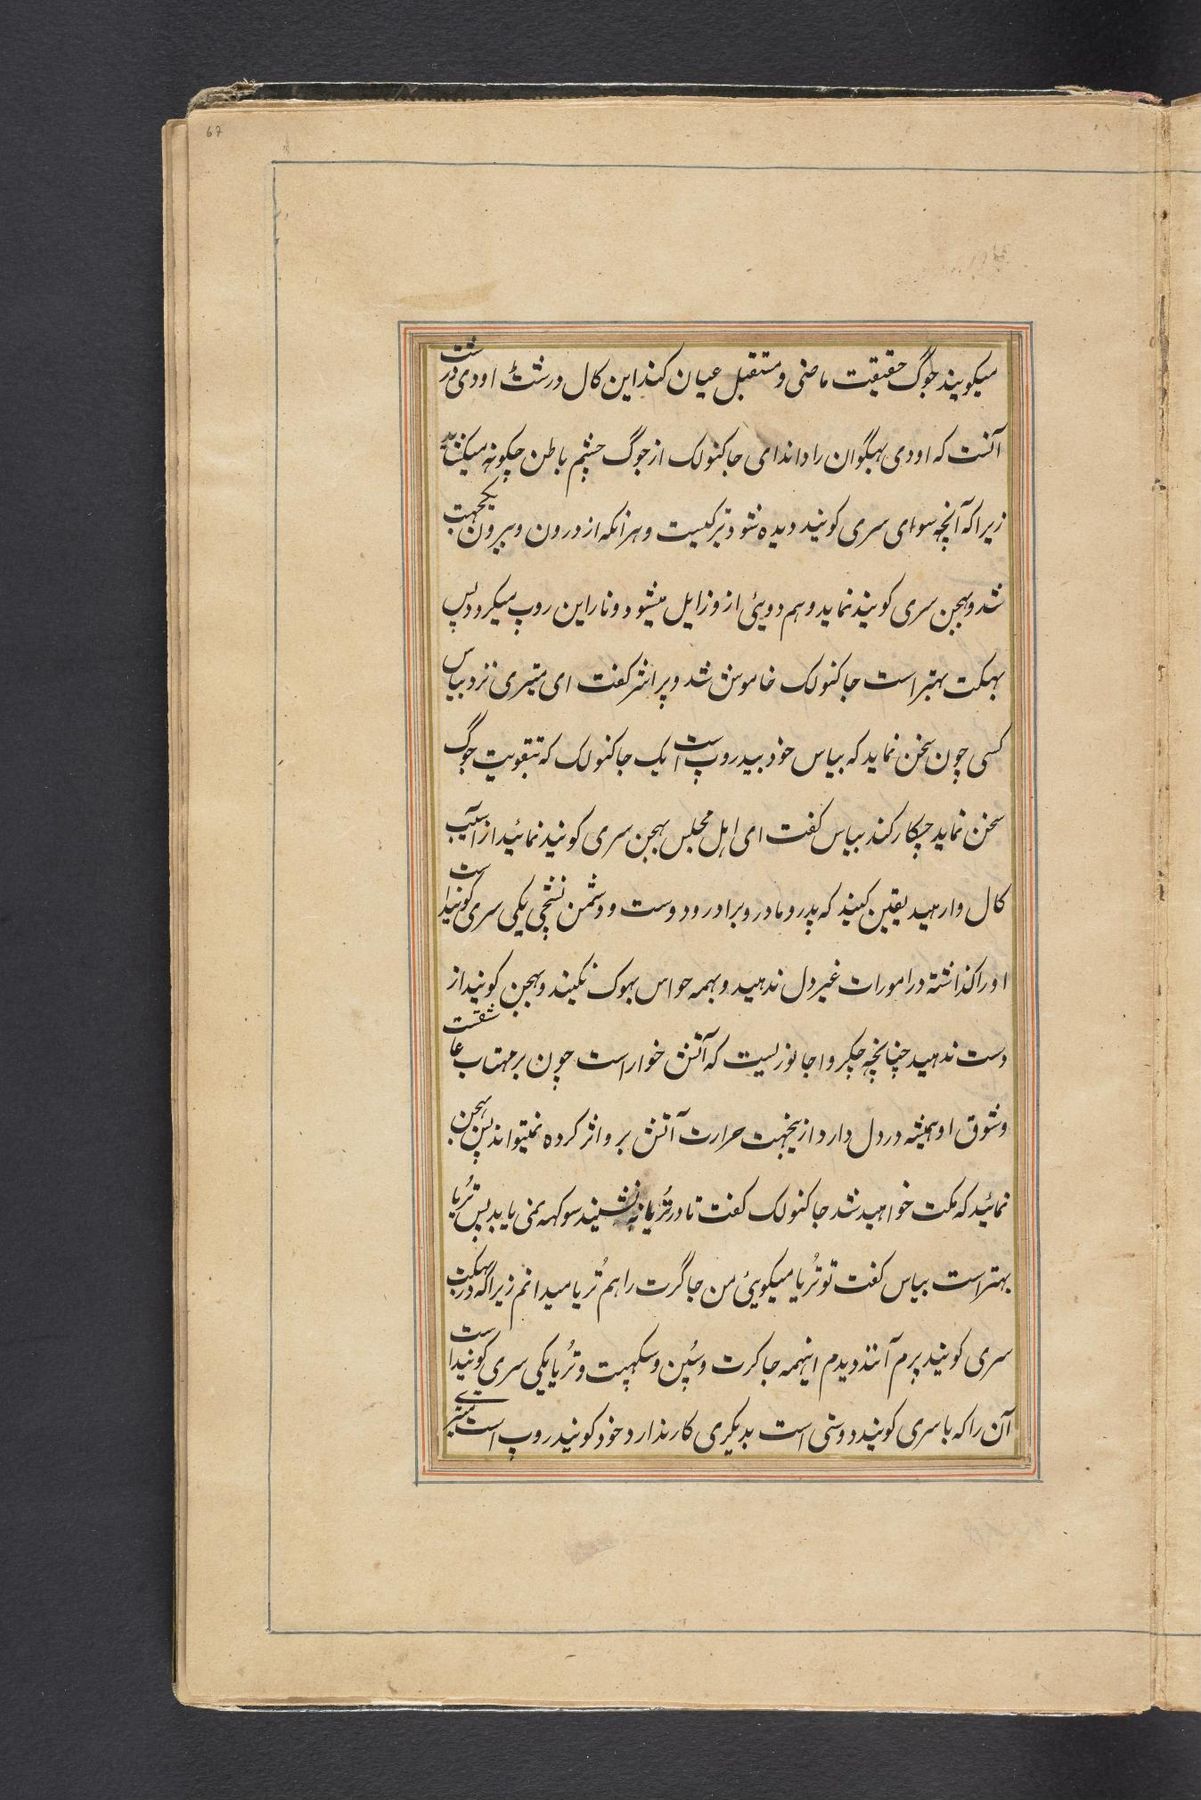 67
میکویند جوگ حقیقت ماضی و مستقبل عیان کند این کال درشٹ اودی درشت
آنست که اودی بهگوان را داند ای جاکنولک از جوگ چشم باطن چکونه میکشاید
زیرا که آنچه سوای سری کوبند دیده شود تیرکیست و هرانکه از درون و بیرون یکجهت
شد و بهجن سری کوبند نماید و هم دویئ از و زایل میشود و ناراین روپ میکردد پس
بهکت بهتر است جاکنولک خاموش شد و پراشر کفت ای متیری نزد بیاس
کسی چون سخن نماید که بیاس خود بید روپ است ایک جاکنولک که بتقویت جوگ
سخن نماید چکار کند بیاس کفت ای اهل مجلس بهجن سری کوبند نمائید از آسیب
کال وارهید یقین کنید که پدر و مادر و برادر و دوست و دشمن نشچی یکی سری کوبند است
اورا کذاشته در امورات غیر دل ندهید و بهمه حواس بهوک نکنید و بهجن کوبند از
دست ندهید چنانچه چکروا جانوریست که آتش خوار است چون بر مهتاب عاشقست
و شوق او همیشه در دل دارد ازینجهت حرارت آتش برو اثر کرده نمیتواند پس بهجن
نمائید که مکت خواهید شد جاکنولک کفت تا در تُریا نه نشیند سوکهه نمی یابد پس تُریا
بهتر است بیاس کفت تو تُریا میکویئ من جاگرت را هم تُریا میدانم زیرا که در بهکت
سری کوبند پرم آنند دیدم اینهمه جاکرت و سُپن و سکهپت و تُریا یکی سری کوبند است
آن را که با سری کوبند دوستی است بدیکری کار ندارد خود کوبند روپ است متیری